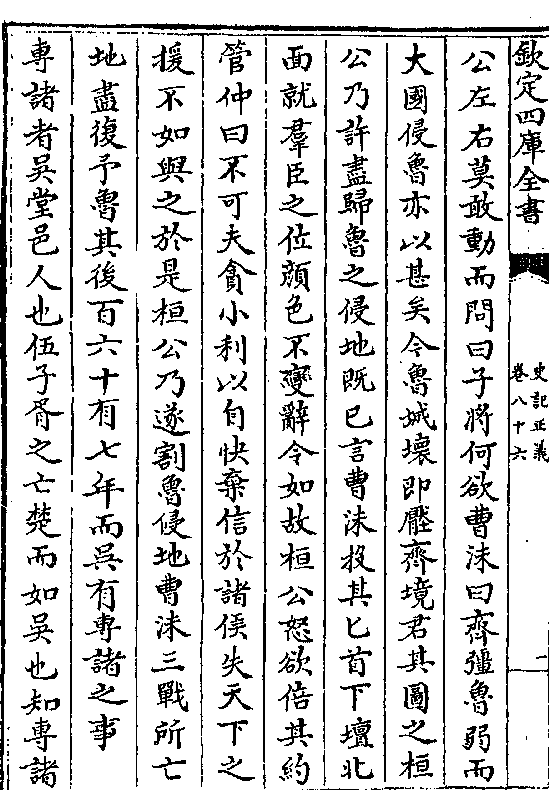 欽定四庫全書
史記正義
卷八十六
二
公左右莫敢動而問曰子將何欲曹沬曰齊彊魯弱而
大國侵魯亦以甚矣今魯城壞即壓齊境君其圖之桓
公乃許盡歸魯之侵地既已言曹沬投其匕首下壇北
面就羣臣之位顔色不變辭令如故桓公怒欲倍其約
管仲曰不可夫貪小利以自快棄信於諸侯失天下之
援不如與之於是桓公乃遂割魯侵地曹沬三戰所亡
地盡復予魯其後百六十有七年而吳有專諸之事
專諸者吳堂邑人也伍子胥之亡楚而如吳也知專諸